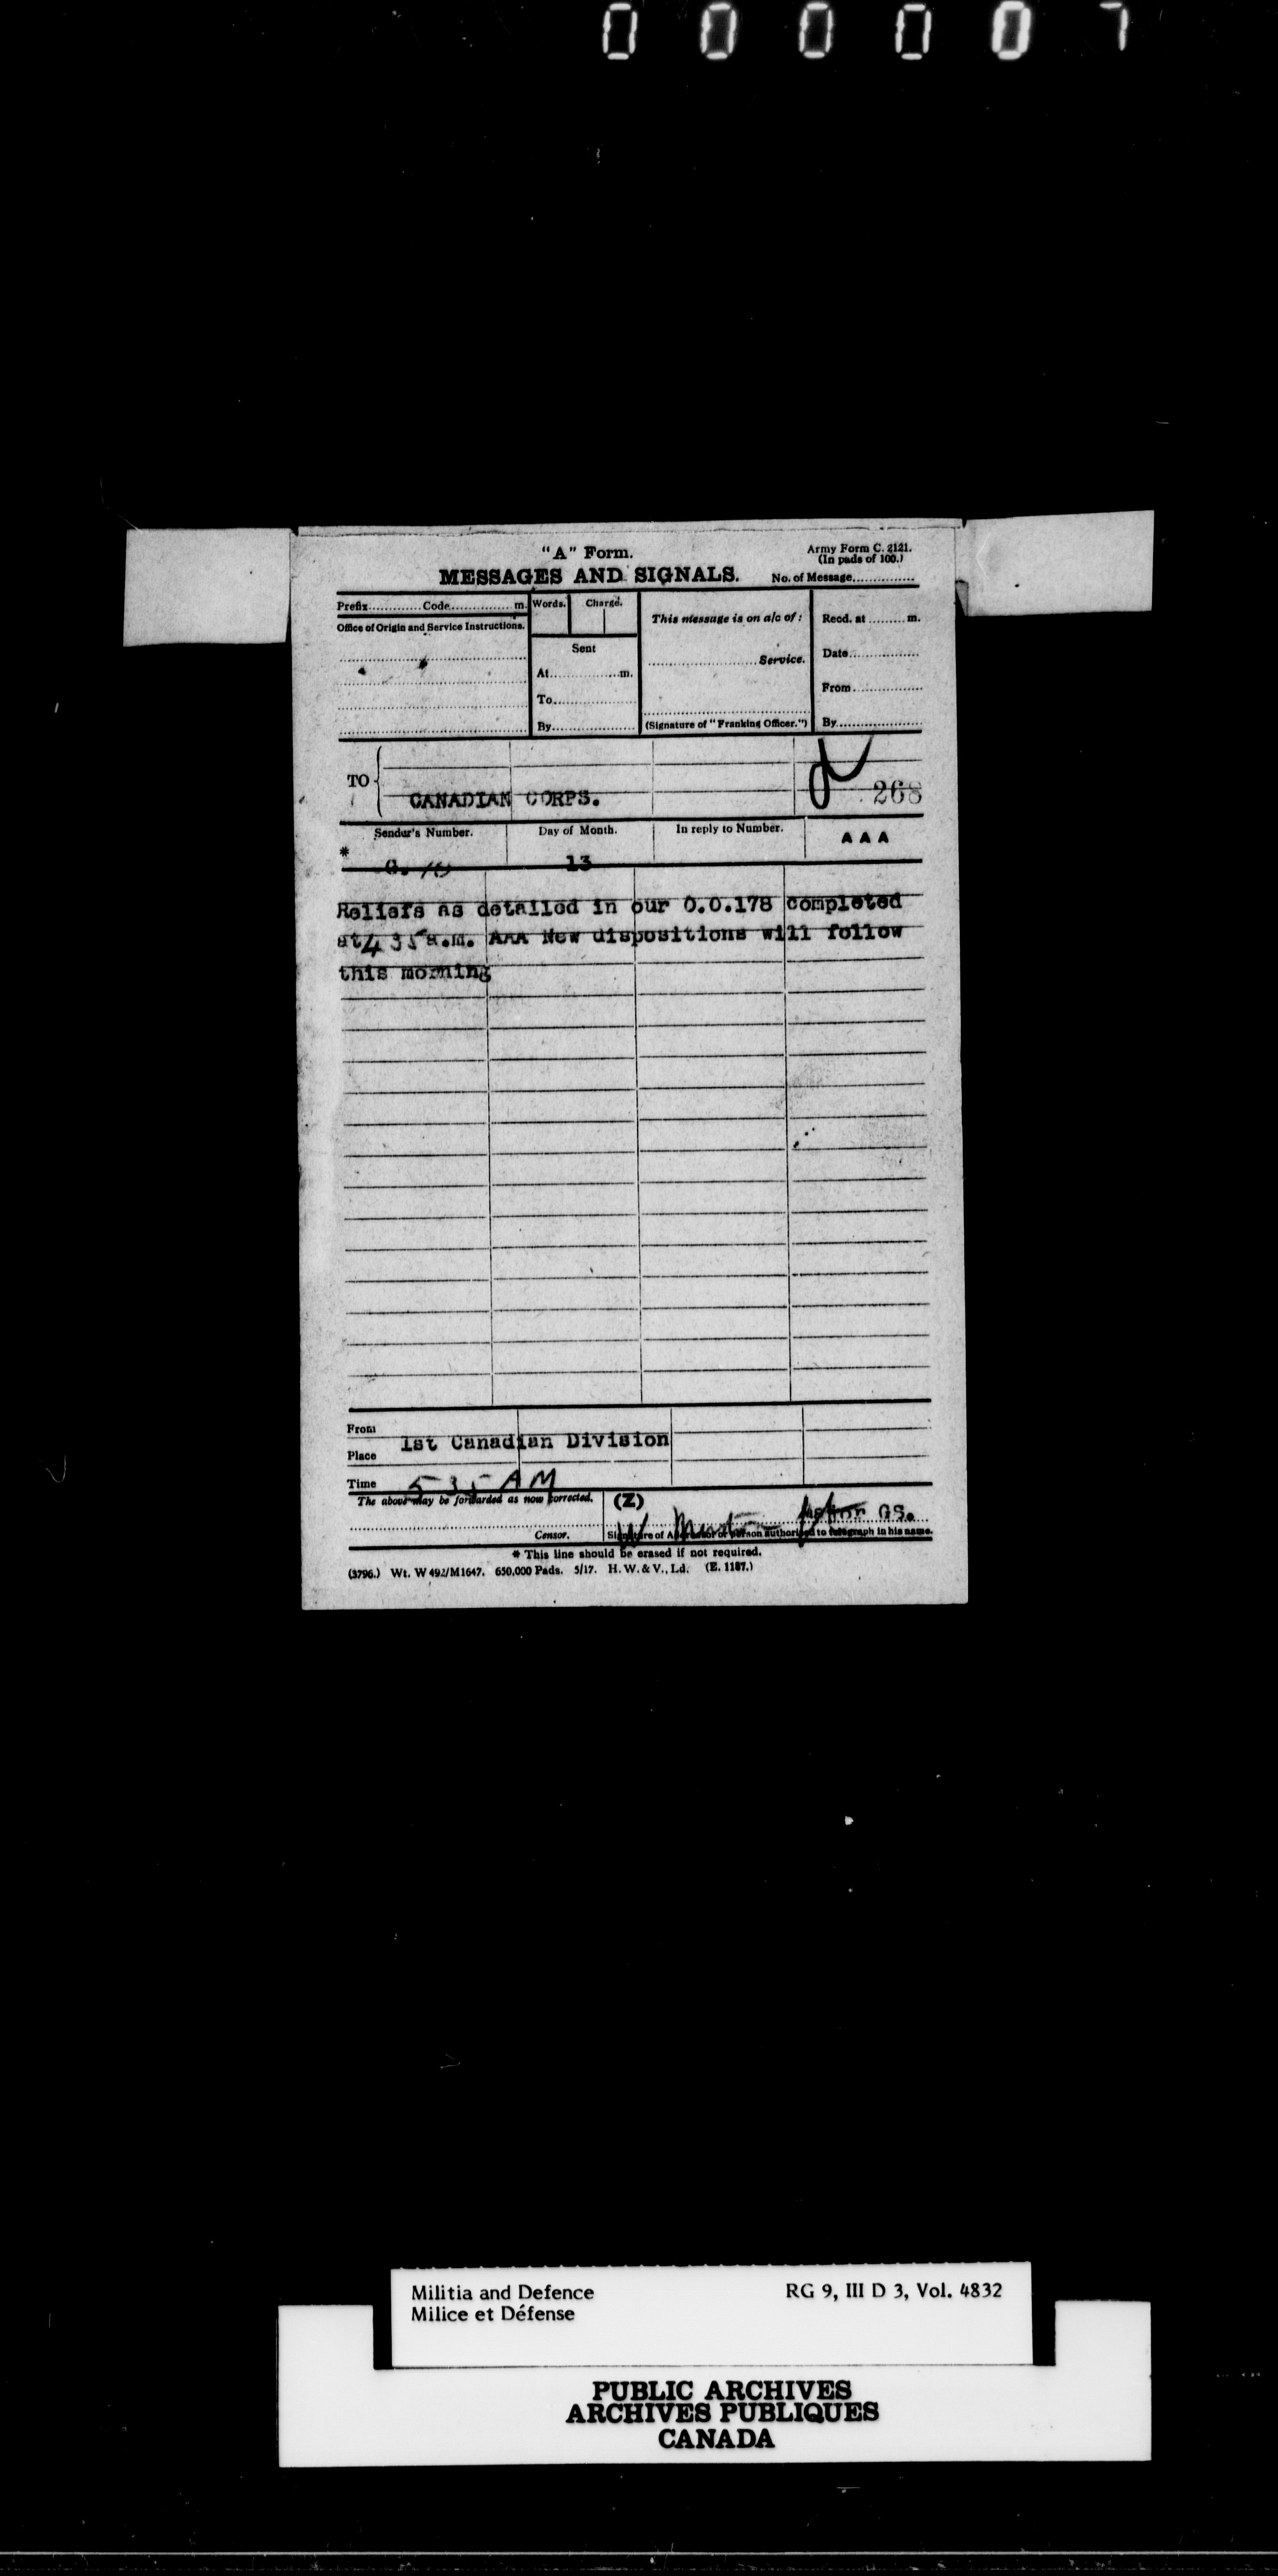 000007
"A" Form.
Army Form C. 2121.
(In pads of 100.)
MESSAGES AND SIGNALS.
No. of Message...............
Prefix............Code...............m.
Words.
Charge.
This message is on a/c of:
Recd. at.........m.
Office of Origin and Service Instructions.
Sent
................Service.
Date................
At................m.
From................
To................
By................
(Signature of "Franking Officer.")
By................
TO
CANADIAN CORPS.
268
Sender's Number.
Day of Month.
In reply to Number.
AAA
*
G. 10
13
Reliefs as detailed in our O.O.178 completed
at 4 35 a.m. AAA New dispositions will follow
this morning
From
1st Canadian Division
Place
Time 5 35 AM
The above may be forwarded as now corrected.
(Z)
Major GS.
Censor.
Signature of Addressor or person authorised to telegraph in his name.
* This line should be erased if not required.
(3796.) Wt. W492/M1647. 650,000 Pads. 5/17. H.W.&V., Ld. (E. 1187.)
Militia and Defence
RG 9, III D 3, Vol. 4832
Milice et Défense
PUBLIC ARCHIVES
ARCHIVES PUBLIQUES
CANADA